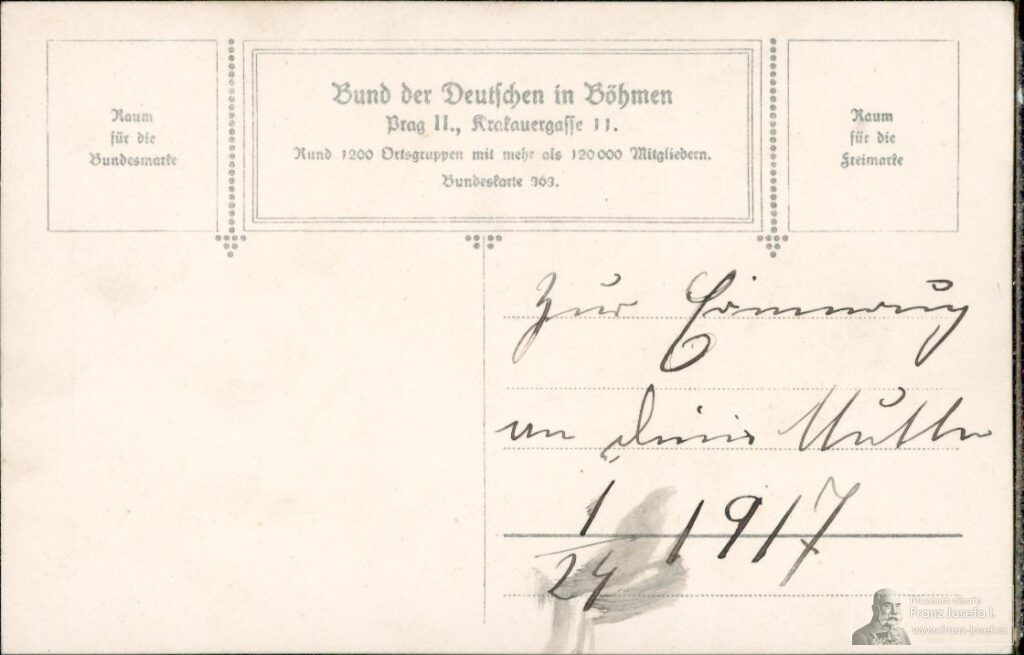 Raum
für die
Bundesmarke
Bund der Deutschen in Böhmen
Prag II., Krakauergasse 11.
Rund 1200 Ortsgruppen mit mehr als 120000 Mitgliedern.
Bundeskarte 363.
Raum
für die
Freimarke
Zur Erinnerung
an Deine Mutter
1
24 1917
Muzeum císaře
Franz Josefa I.
www.franz-josef.cz